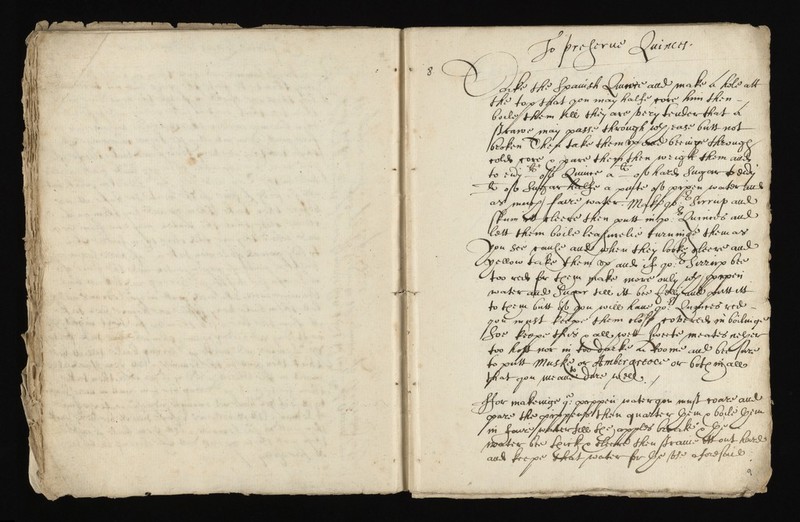 To preserue Quinces.
8
Take the Spanish Quince and make a hole att
the top that you may halfe core him then
boile them till they are very tender that a
strawe may passe through wth ease butt not
broken Then take them up and through
cold core & pare them then weigh them and
to euy lb of Quince a lb of hard Sugar to euy
lb of Sugar halfe a pinte of pippin water and
as much faire water Make yor Sirrup and
skum itt cleere then putt in yor Quinces and
lett them boile leasurelie turninge them as
you see cause and when they looke cleere and
yellow take them up and if yor Sirrup bee
too red for them make more only wth pippin
water and Sugar till itt bee and putt itt
to them butt if you will haue yor Quinces red
you must keepe them close couered in boilinge
Soe keepe this & all wett sweete meates neuer
too hott nor in a roome and bee sure
to putt Muske or Ambergreece or both in all
that you meane to doe well.
ffor makeinge ye pippin water you must coare and
pare the pippens then quarter them & boile them
in faire water till the apples breake & the
water bee thick & then straine itt out hard
and keepe that water for the use aforesaid.